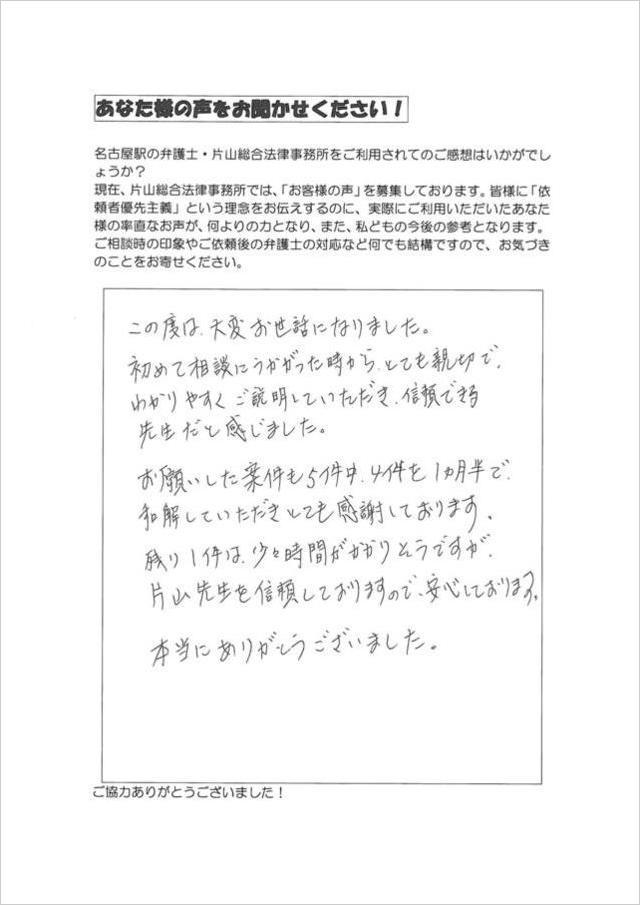 あなた様の声をお聞かせください！
名古屋駅の弁護士・片山総合法律事務所をご利用されてのご感想はいかがでし
ょうか？
現在、片山総合法律事務所では、「お客様の声」を募集しております。皆様に「依
頼者優先主義」という理念をお伝えするのに、実際にご利用いただいたあなた
様の率直なお声が、何よりの力となり、また、私どもの今後の参考となります。
ご相談時の印象やご依頼後の弁護士の対応など何でも結構ですので、お気づき
のことをお寄せください。
この度は、大変お世話になりました。
初めて相談にうかがった時から、とても親切で、
わかりやすくご説明していただき、信頼できる
先生だと感じました。
お願いした案件も5件中、4件を1カ月半で、
和解していただきとても感謝しております。
残り1件は、少々時間がかかりそうですが、
片山先生を信頼しておりますので、安心しております。
本当にありがとうございました。
ご協力ありがとうございました！